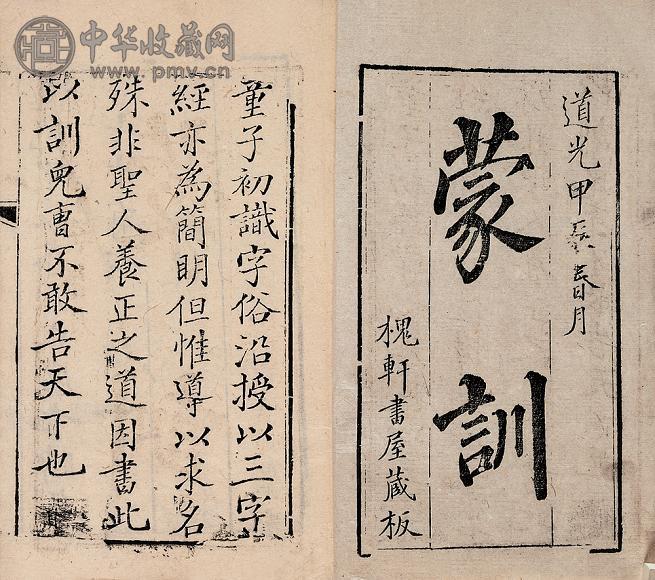 中华收藏网
www.pmv.cn
道光甲辰春月
蒙訓
槐軒書屋藏板
童子初識字俗沿授以三字
經亦為簡明但惟導以求名
殊非聖人養正之道因書此
以訓兒曹不敢告天下也